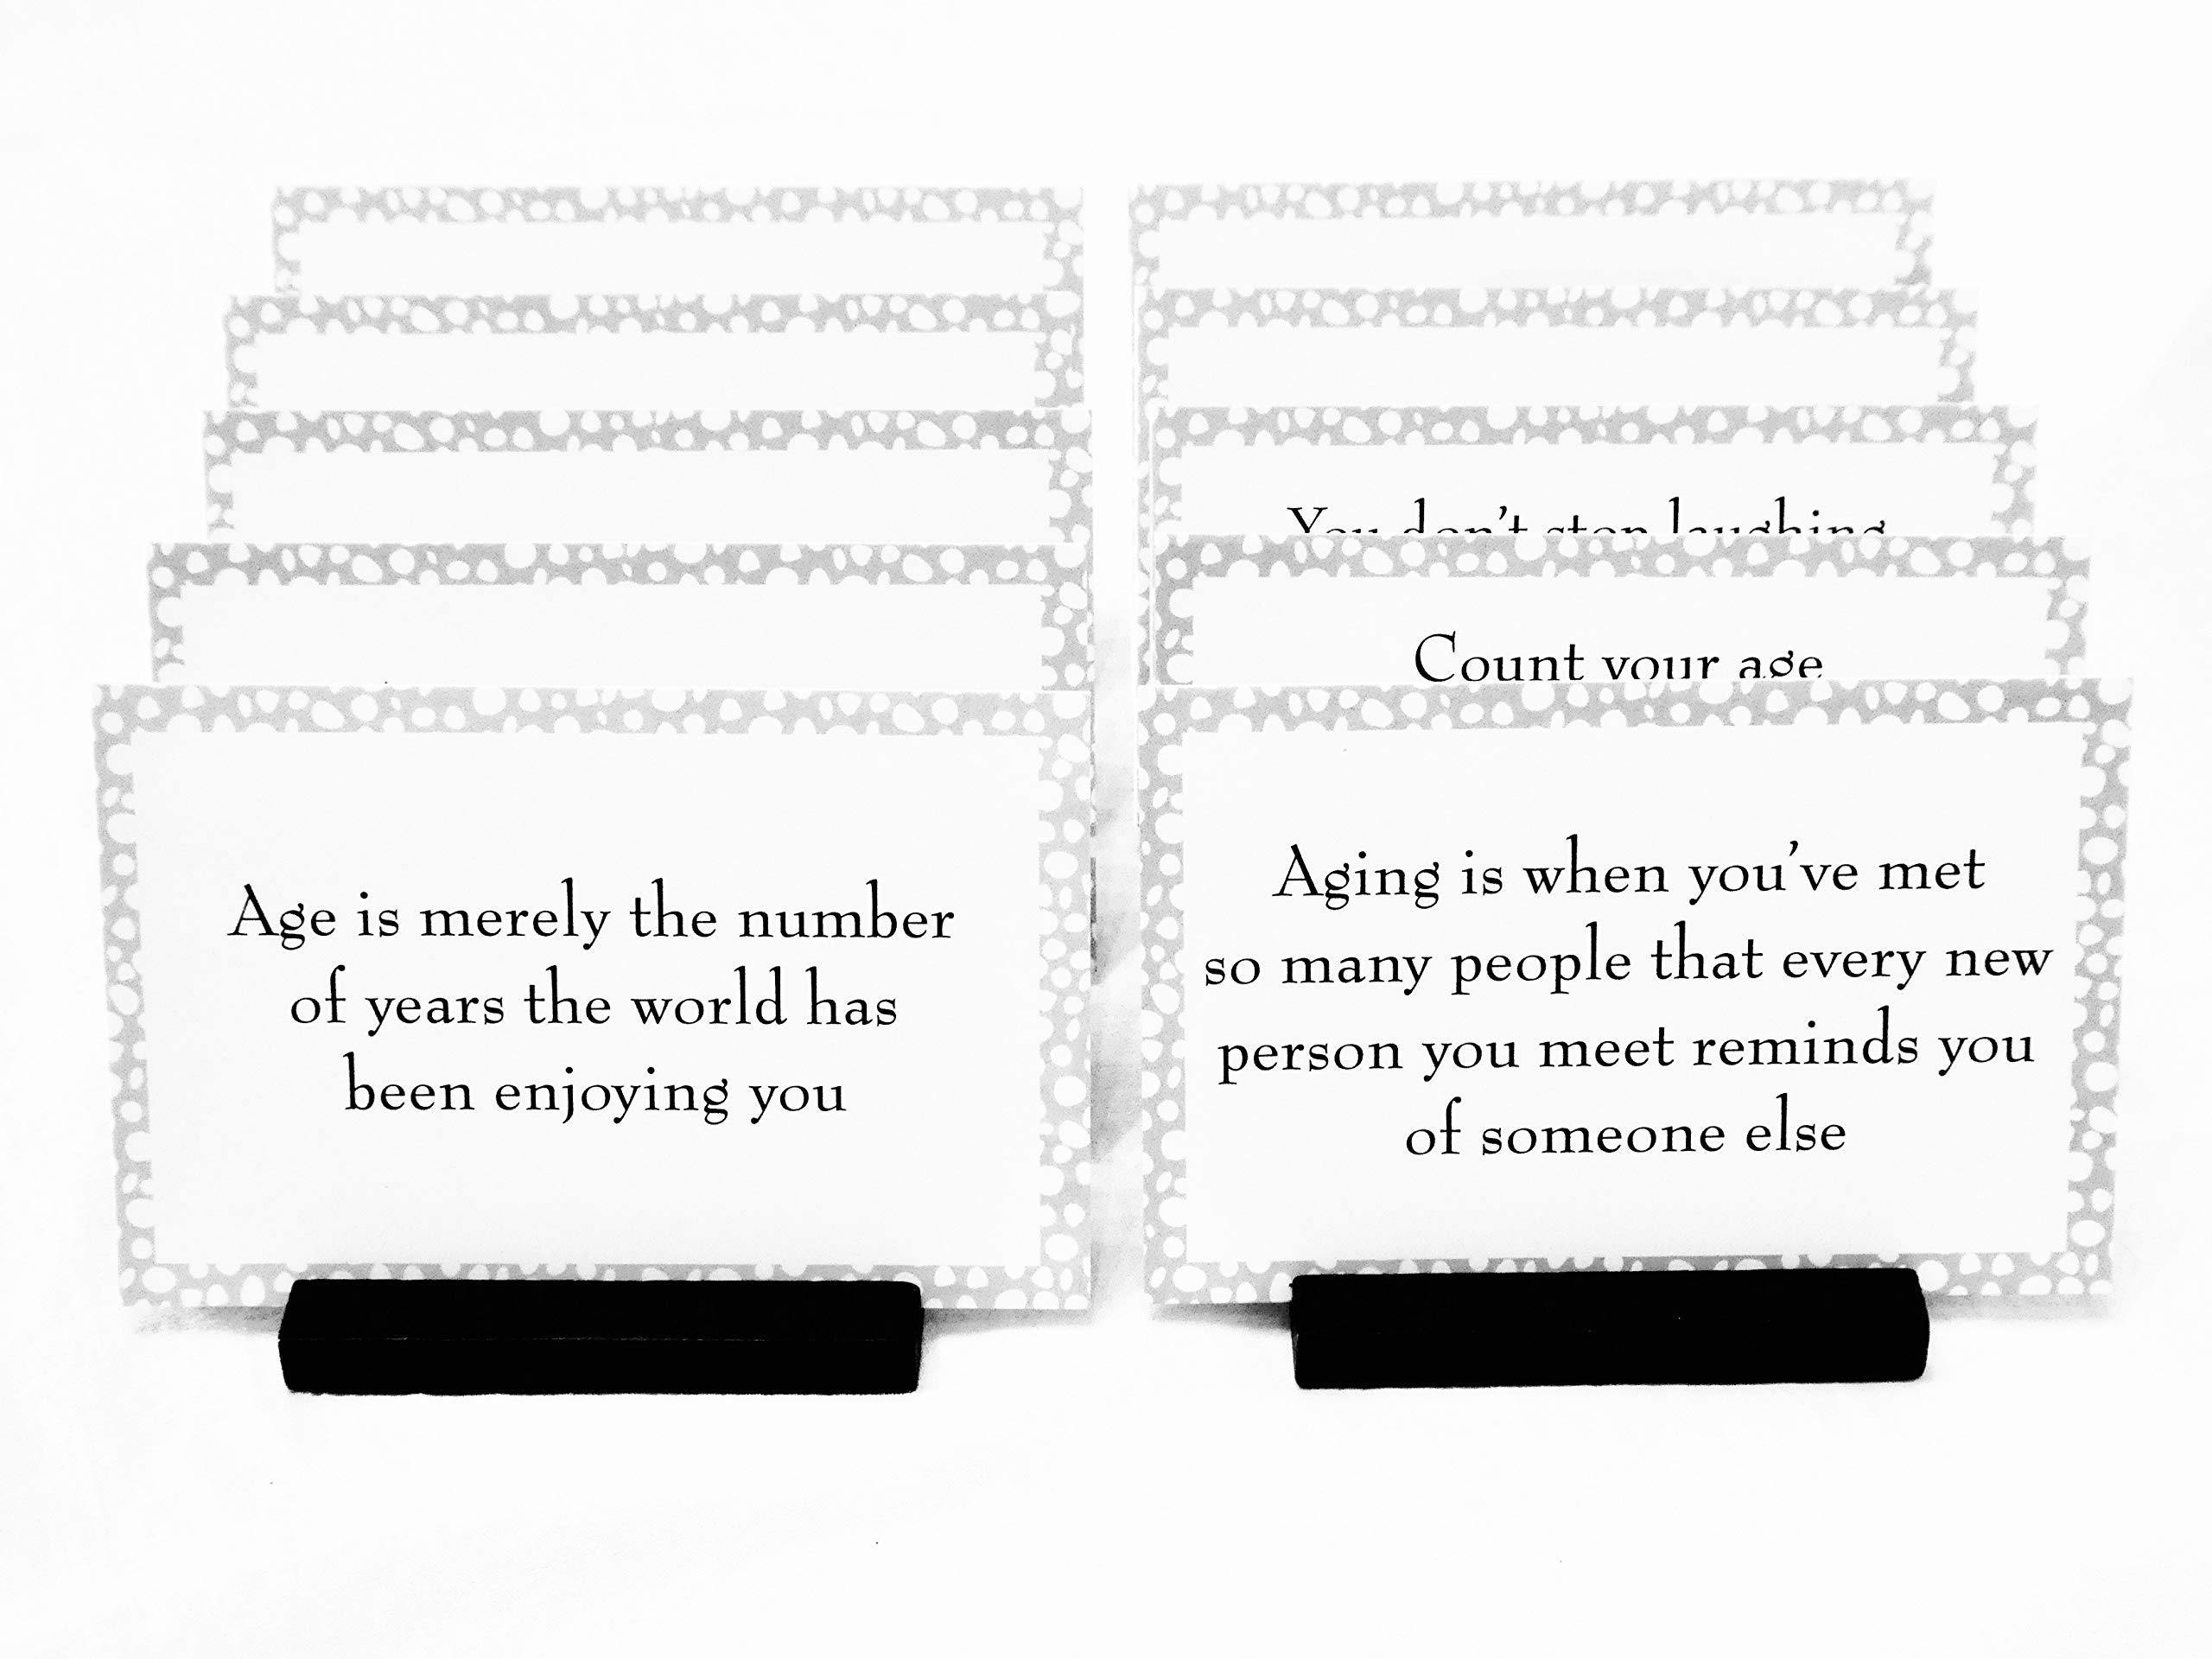 Age is merely the number
of years the world has
been enjoying you
You don't stop laughing
Count your age
Aging is when you've met
so many people that every new
person you meet reminds you
of someone else